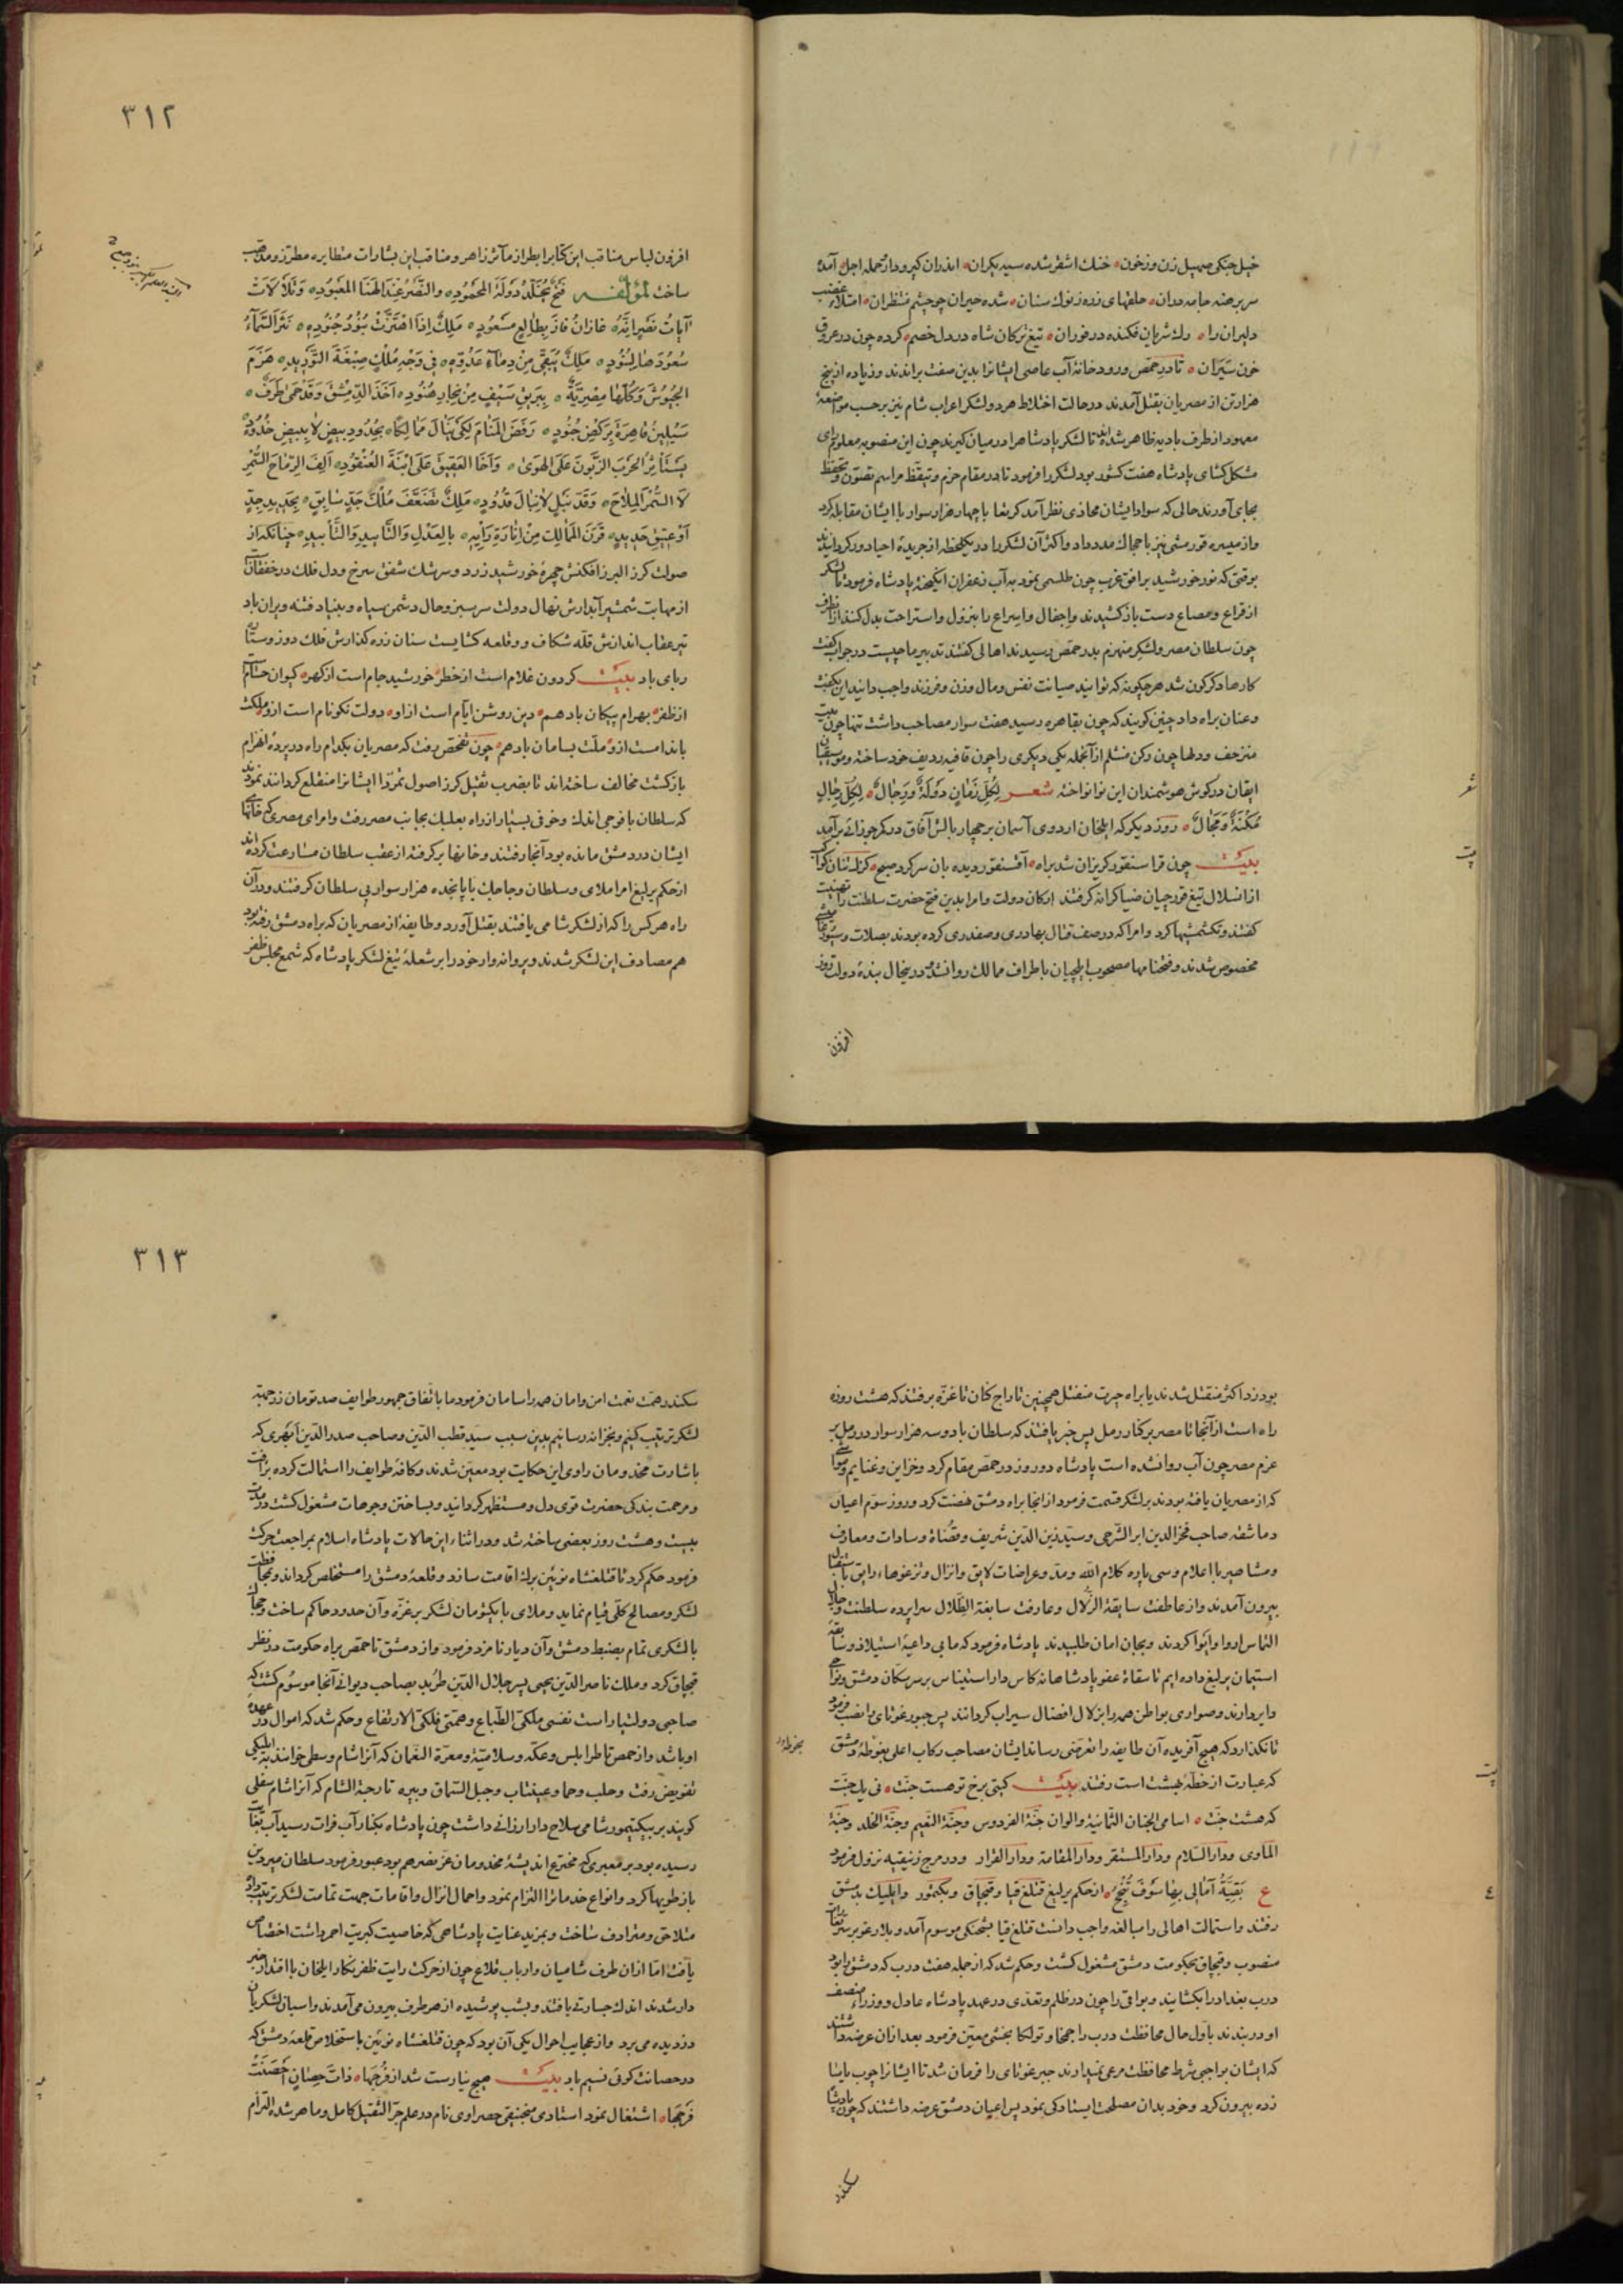 خیل جنکی صهیل زن وز خون خنك اشقر شده سیه بکران اندران کیرودار حمله اجل آمده
سر برهنه جامه دوران حلقهای زده ز نوك سنان شده حیران چو چشم منتظران امتلاء غضب
دلیران را رك شریان فکنده در فوران تیغ ترکان شاه در دل خصم کرده چون در عروق
خون سَیَران تا در حمص و رودخانۀ آب عاصی ایشانرا بدین صفت براندند و زیاده از پنج
هزار تن از مصریان بقتل آمدند در حالت اختلاط هر دو لشکر اعراب شام نیز بر حسب مواضعۀ
معهود از طرف بادیه ظاهر شده اند تا لشکر پادشاه را در میان کیرند چون این منصوبه معلوم رای
مشکل کشای پادشاه هفت کشور بود لشکر را فرمود تا در مقام حزم و تیقظ مراسم تصون و تحفظ
بجای آورند حالی که سواد ایشان محاذی نظر آمد کربغا با چهار هزار سوار با ایشان مقابله کرد
و از میسره قورمشی نیز با حجاك مدد داد و اکثر آن لشکر را در یکلحظه از جریدۀ احیا دور کردانیدند
بوقتی که نور خورشید بر افق غرب چون طلسمی بنمود به آب زعفران انکیخته پادشاه فرمود تا لشکر
از قراع و مصاع دست باز کشیدند و اجفال و ایساع را بنزول و استراحت بدل کنند از آنطرف
چون سلطان مصر و لشکر منهزم بدر حمص رسیدند اهالی کفتند تدبیر ما چیست در جواب کفت
کارها دکرکون شد هر چکونه که توانید صیانت نفس و مال و زن و فرزند واجب دانید این بکفت
و عنان براه داد چنین کویند که چون بقاهره رسید هفت سوار مصاحب داشت تنها چون بیت
منزحف و دلها چون رکن منثلم از آنجمله یکی دیکری را چون قافیه ردیف خود ساخته و موسیقیان
ایقان در کوش هوشمندان این نوا نواخته شعر لِکُلِّ زَمَانٍ دَولَةٌ وَرِجَالٌ لِکُلِّ رِجَالٍ
مُکنَةٌ وَمَجَالٌ روز دیکر که ایلخان اردوی آسمان بر چهار بالش آفاق در کر جوزائی برآمد
بیت چون قراسنقور کریزان شد براه آقسنقور دیده بان سر کرد صبح
از انسلال تیغ قورچیان ضیا کرانه کرفتند ارکان دولت و امرا بدین فتح حضرت سلطنت را تهنیت
کفتند و تکشمیشیها کرد و امرا که در صف قتال بهادری و صفدری کرده بودند بصلات و سیورغامیشی
مخصوص شدند و فتحنامها مصحوب ایلچیان باطراف ممالك روانشد در ینحال بندۀ دولت روز
افزون
٣١٢
افزون لباس مناقب این کتابرا بطراز مآثر زاهر و مناقب این بشارات متطایره مطرز و مذهب
ساخت لمؤلفه فَتحٌ تُجَدِّدُ دَولَةَ المَحمُودِ وَالنَّصرُ عِندَ اِلهِنَا المَعبُودِ وَتَلَألَأَت
آیَاتُ نَصرِ اِنَّهُ غازَانُ فَازَ بِطَالِعٍ مَسعُودٍ مَلِكٌ اِذَا اهتَزَّت بُنُودُ جُنُودِهِ نَثَرَ السَّمَآءُ
سُعُودَهَا لِبُنُودٍ مَلِكٌ یُبَقّی مِن دِمَاءِ عَدُوِّهِ فی وَجهِ مُلكٍ صِبغَةَ التَّورِیدِ هَزَمَ
الجُیُوشَ وَکُلُّهَا مِصرِیَّةٌ بِبَرِیقِ سَیفٍ مِن نِجَادِ هُنُودِ اَخَذَ الدِّمَشقَ وَقَد حَمی طَرَفٌ
سَیُلِینُ قَاهِرَةَ بِرَکضِ جُنُودٍ رَفَضَ المَنَامَ لِکَی یَنَالَ مَمَالِکًا بِحُدُودِ بِیضٍ لَا بِبِیضِ خُدُودٍ
یَستَأثِرُ الحَربَ الزَّبُونَ عَلَی الهَوی وَاَخَا العَقِیقَ عَلَی ابنَةِ العُنقُودِ اَلِفَ الرِّمَاحَ السُّمرَ
لَا السُّمرَ المِلَاحَ وَقَد نَبَل لَا نِبَالَ قُدُودٍ مَلِكٌ تَضَعَّفَ مُلكَ جَدٍّ سَابِقٍ بِجَدِیدِ جِدٍّ
اَو عَتِیقِ جَدِیدٍ قَرَنَ المَمَالِكَ مِن اِنَارَةِ رَأیِهِ بِالعَدلِ وَالتَّایِیدِ وَالتَّأبِیدِ چنانکه از
صولت کرز البرز افکنش چهرۀ خورشید زرد و سرشك شفق سرخ و دل فلك در خفقانست
از مهابت شمشیر آبدارش نهال دولت سرسبز و حال دشمن سیاه و بنیاد فتنه ویران باد
تیر عقاب اندازش قلّه شکاف و و قلعه کشایست سنان زره کذارش فلك دوز و ستان
ربای باد بیت کردون غلام است از خطر خورشید جام است از کهر کیوان حسام است
از ظفر بهرام پیکان باد هم دین روشن ایام است از او دولت نکونام است ازو ملکت
باندامست ازو ملّت بسامان باد هم چون تفحّص رفت که مصریان بکدام راه در پردۀ انهزام
بازکشت مخالف ساخته اند تا بضرب ثقیل کرز اصول تمرّد ایشانرا منقلع کردانند نمودند
که سلطان با فوجی اندك و خوفی بسیار از راه بعلبك بجانب مصر رفت و امرای مصری که خانهاء
ایشان در دمشق مانده بود آنجا رفتند و خانها بر کرفته از عقب سلطان مسارعت کرده اند
از حکم یرلیغ امرا ملای و سلطان و جاجیك با پانجده هزار سوار پی سلطان کرفتند و در آن
راه هر کس را که از لشکر شامی یافتند بقتل آورد و طایفۀ از مصریان که براه دمشق رفته بود
هم مصادف این لشکر شدند و پروانه وار خود را بر شعلۀ تیغ لشکر پادشاه که شمع مجلس ظفر
بود زد اکثر منقتل شدند یا براه حیرت منفتل همچنین تاراج کنان تا غزّه برفتند که هشت روزه
راه است از آنجا تا مصر برکنار رمل پس خبر یافتند که سلطان با دو سه هزار سوار در رمل بر
عزم مصر چون آب روانشده است پادشاه دو روز در حمص مقام کرد و خزاین و غنایم و مواشی
که از مصریان یافته بودند بر لشکر قسمت فرمود از انجا براه دمشق نهضت کرد و روز سوّم اعیان
دماشقه صاحب فخر الدین ابن الشرجی و سیّد زین الدّین شریف و قضاة و سادات و معارف
و مشاهیر با اعلام و سی پاره کلام اللّه و مدّ و عراضات لایق و انزال و تزغوهاء رایق باستقبال
بیرون آمدند و از عاطفت سابقة الزُّلال و عارفت سابغة الظّلال سراپرده سلطنت و جلال
التماس ادوا واتوا کردند و بجان امان طلبیدند پادشاه فرمود که ما بی داعیۀ استیلاذ و سابقۀ
استیمان یرلیغ داده ایم تا سقاة عفو پادشاهانه کاس دار استیناس بر سر سکّان دمشق و نواحی
دایر دارند و صوادی بواطن همه را بزلال افضال سیراب کردانند پس جبورغوتای را نصب فرمود
تا نکذارد که هیچ آفریده آن طایفه را تعرّضی رساند ایشان مصاحب رکاب اعلی بغوطۀ دمشق
که عبارت از خطّۀ بهشت است رفتند بیت کیتی برخ توهست جنّت نی یك جنّت
که هشت جنّت اسامی الجنان الثّمانیة والوان جنّة الفردوس وجنّة النّعیم وجنّة الخلد وجنّة
المأوی ودار السّلام ودار المستقر ودار المقامة ودار القرار و در مرج زنبقیه نزول فرمود
ع بَقِیَّةُ آمَالِی بِهَا سَوفَ تُنجَحُ از حکم یرلیغ قتلغ قیا و قبچاق و بکتمور و ایلبك بدمشق
رفتند و استمالت اهالی را مبالغه واجب دانست قتلغ قیا بشحنکی موسوم آمد و بلارغو بر سر یتغات
منصوب و قبچاق بحکومت دمشق مشغول کشت و حکم شد که از جمله هفت درب که دمشق را بود
درب بغداد را بکشایند و بواقی را چون در ظلم و تعدّی در عهد پادشاه عادل و وزراء منصف
او در بندند باوّل حال محافظت درب را جمخا و تولکا بخشی معیّن فرمود بعد از ان عرضه داشتند
که ایشان بواجبی شرط محافظت مرعی نمیدارند جبرغوتای را فرمان شد تا ایشانرا چوب یاسا
زده بیرون کرد و خود بدان مصلحت ایستادکی نمود پس اعیان دمشق عرضه داشتند که چون پادشاه
سکندر
بغوطۀ
٣١٣
سکندر همّت نعمت امن و امان همه را سامان فرمود ما باتّفاق جمهور طوایف صد تومان زر جهة
لشکر ترتیب کنیم و بخزانه رسانیم بدین سبب سیّد قطب الدّین و صاحب صدر الدّین ابهری که
باشارت مخدومان راوی این حکایت بود معیّن شدند و کافۀ طوایف را استمالت کرده برافت
و مرحمت بندکی حضرت قوی دل و مستظهر کردانید و بساختن وجوهات مشغول کشت در مدّت
بیست و هشت روز بعضی ساخته شد و در اثناء این حالات پادشاه اسلام بمراجعت حرکت
فرمود حکم کرد تا قتلغشاه نوئین برك اقامت سازد و قلعۀ دمشق را مستخلص کرداند و بمحافظت
لشکر و مصالح کلّی قیام نماید و ملای با یکتومان لشکر بر غزّه و آن حدود حاکم ساخت و حجاك
با لشکری تمام بضبط دمشق و آن دیار نامزد فرمود و از دمشق تا حمص براه حکومت در نظر
قبچاق کرد و ملك ناصر الدّین یحیی پسر جلال الدّین طرید بصاحب دیوانی آنجا موسوم کشت که
صاحبی دولتیار است نفسی ملکیّ الطّباع و همّتی فلکیّ الارتفاع و حکم شد که اموال در عهدۀ
او باشد و از حمص تا طرابلس و عکّه و سلامیّة و معرّة النعمان که آنرا شام وسطی خوانند به ایلبکی
تفویض رفت و حلب و حما و عینتاب و جبل السّماق و بیره تا رحبة الشام که آنرا شام سفلی
کویند بر بیکتیمور شامی سلاح دار ارزانی داشت چون پادشاه بکنار آب فرات رسید آب بغایت
رسیده بود بر معبری که مخترع اندیشۀ مخدومان عزّ نصرهم بود عبور فرمود سلطان میردین
باز طویها کرد و انواع خدماترا التزام نمود و احمال انزال و اقامات جهت تمامت لشکر ترتیب داد
متلاحق و مترادف ساخت و بمزید عنایت پادشاهی که خاصیت کبریت احمر داشت اختصاص
یافت امّا از ان طرف شامیان و ارباب قلاع چون از حرکت رایت ظفر نکار ایلخان با اقتدار خبر
دار شدند اندك جسارتی یافتند و بشب پوشیده از هر طرف بیرون می آمدند و اسبان لشکریان
دزدیده می برد و از عجایب احوال یکی آن بود که چون قتلغشاه نوئین باستخلاص قلعۀ دمشق که
در حصانت کوئی نسیم باد بیت هیچ نیارست شد از فُرجَها ذَاتَ حِصَانٍ اَحصَنَت
فَرجَهَا اشتغال نمود استادی منجنیقی حصراوی نام در علم جرّ الثقیل کامل و ماهر شده التزام